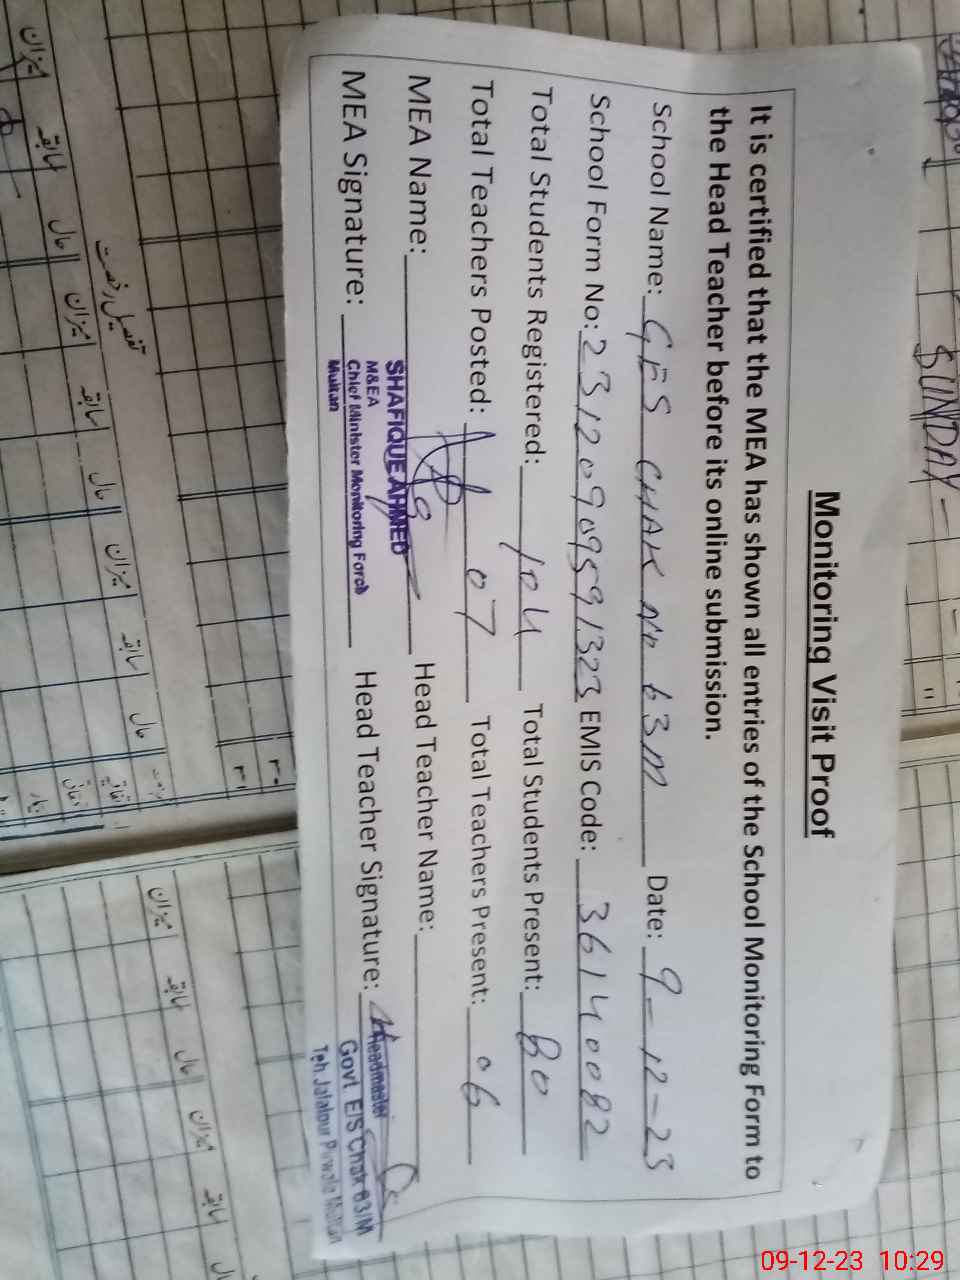 Monitoring Visit Proof
It is certified that the MEA has shown all entries of the School Monitoring Form to
the Head Teacher before its online submission.
School Name: GES CHAK NO 63M Date: 9-12-23
School Form No: 23120909591323 EMIS Code: 36140082
Total Students Registered: 104 Total Students Present: 80
Total Teachers Posted: 07 Total Teachers Present: 06
MEA Name: Head Teacher Name:
SHAFIQUE AHMED
M&EA
Chief Minister Monitoring Force
Multan
MEA Signature: Head Teacher Signature:
Headmaster
Govt. E/S Chak 63/M
Teh Jalalpur Pirwala Multan
SUNDAY
تفصیل رخصت
میزان سابقہ حال میزان سابقہ حال میزان سابقہ حال
میزان سابقہ حال میزان سابقہ حال
09-12-23 10:29